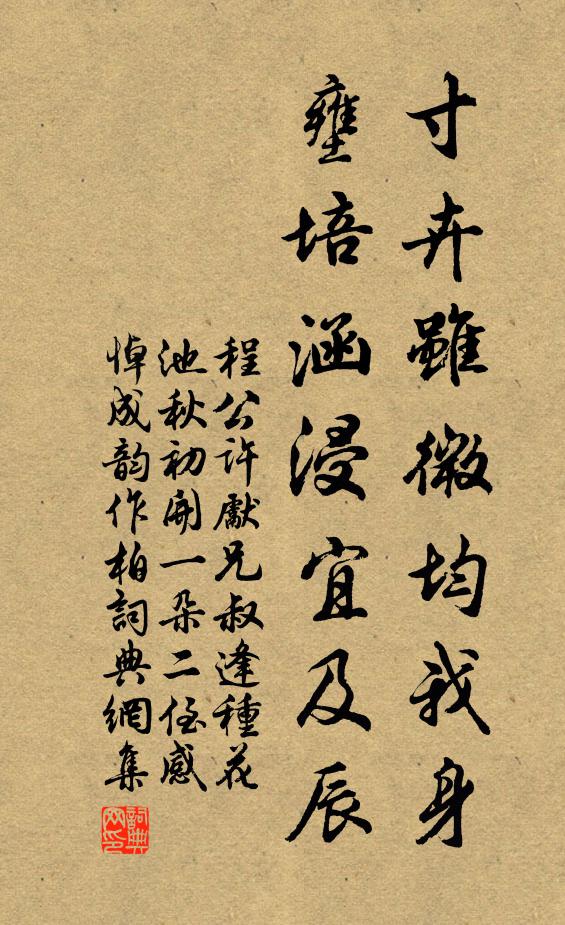 寸卉雖微均我身
壅培涵浸宜及辰
程公許獻兄叔逢種花
池秋初開一朵二侄感
悼成韵作柏詞典網集
詞典网印